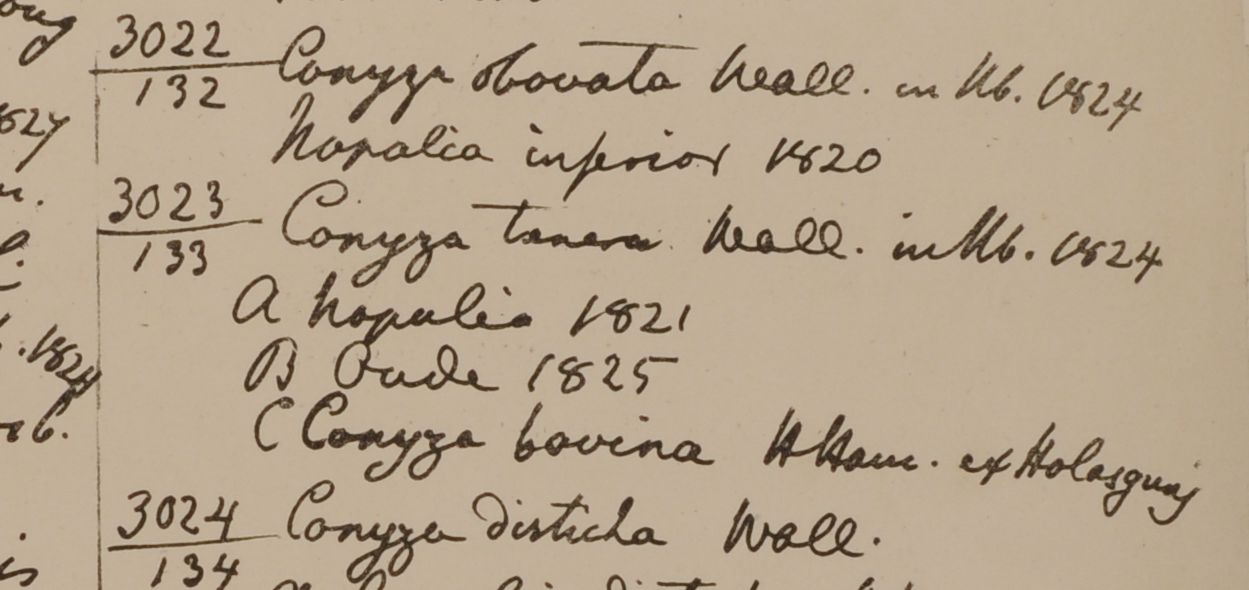 3022
132 Conyza obovata Wall. in Hb. 1824
Napalia inferior 1820
3023
133 Conyza tenera Wall. in Hb. 1824
A Napalia 1821
B Oude 1825
C Conyza bovina HHam. ex Holasgunj
3024
134 Conyza disticha Wall.